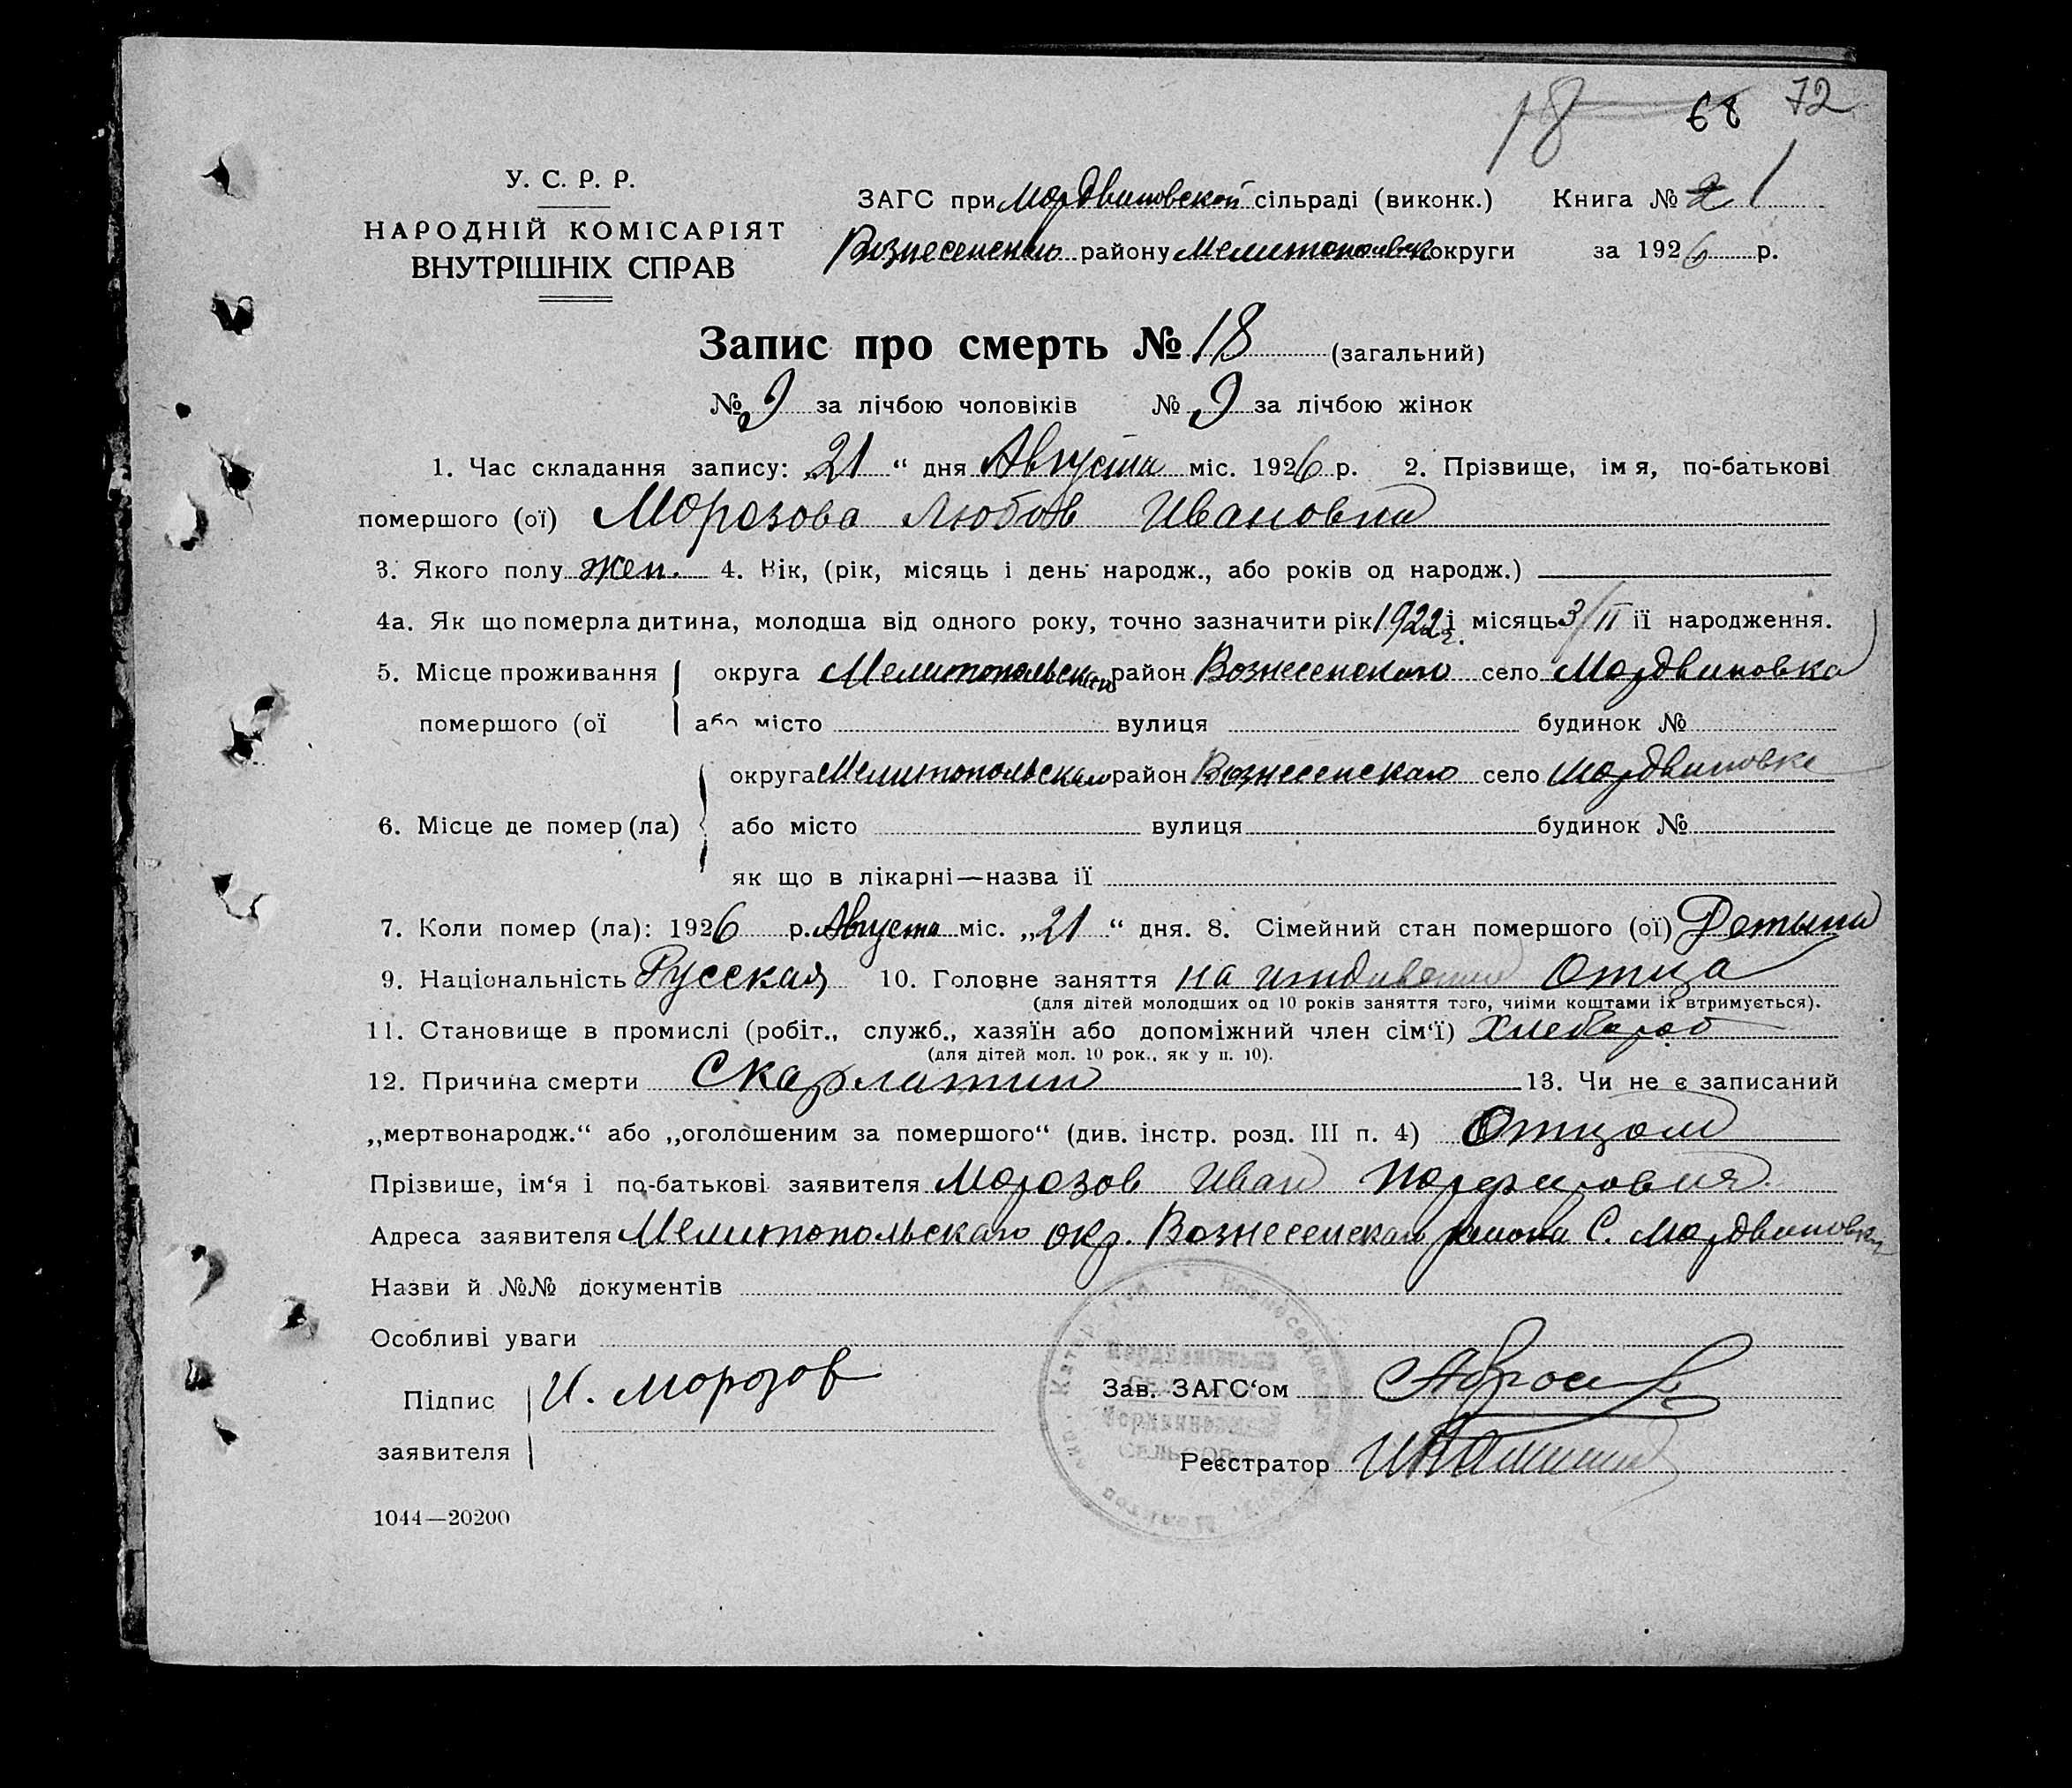 18 68 72
У. С. Р. Р.
НАРОДНІЙ КОМІСАРІЯТ
ВНУТРІШНІХ СПРАВ
ЗАГС при Мордвиновской сільраді (виконк.) Книга № 2 1
Вознесенскаго району Мелитопольск округи за 1926 р.
Запис про смерть № 18 (загальний)
№ 9 за лічбою чоловіків № 9 за лічбою жінок
1. Час складання запису: „21“ дня Августа міс. 1926 р. 2. Прізвище, імя, по-батькові
помершого (ої) Морозова Любов Ивановна
3. Якого полу жен. 4. Вік, (рік, місяць і день народж., або років од народж.)
4а. Як що померла дитина, молодша від одного року, точно зазначити рік 1922 г. і місяць 3/II її народження.
5. Місце проживання округа Мелитопольскаго район Вознесенскаго село Мордвиновка
помершого (ої або місто вулиця будинок №
округа Мелитопольскаго район Вознесенскаго село Мордвиновке
6. Місце де помер (ла) або місто вулиця будинок №
як що в лікарні—назва ії
7. Коли помер (ла): 1926 р. Августа міс. „21“ дня. 8. Сімейний стан помершого (ої)
9. Національність Русская 10. Головне заняття на иждивении Отца
(для дітей молодших од 10 років заняття того, чиїми коштами іх втримується).
11. Становище в промислі (робіт., служб., хазяїн або допоміжний член сім‘ї) Хлебороб
(для дітей мол. 10 рок., як у п. 10).
12. Причина смерти Скарлатин 13. Чи не є записаний
„мертвонародж.“ або „оголошеним за помершого“ (див. інстр. розд. III п. 4) Отцом
Прізвише, ім‘я і по-батькові заявителя Морозов Иван
Адреса заявителя Мелитопольскаго окр. Вознесенскаго района С. Мордвиновки
Назви й №№ документів
Особливі уваги
Підпис И. Морозов
заявителя
Зав. ЗАГС‘ом
Реєстратор
1044—20200